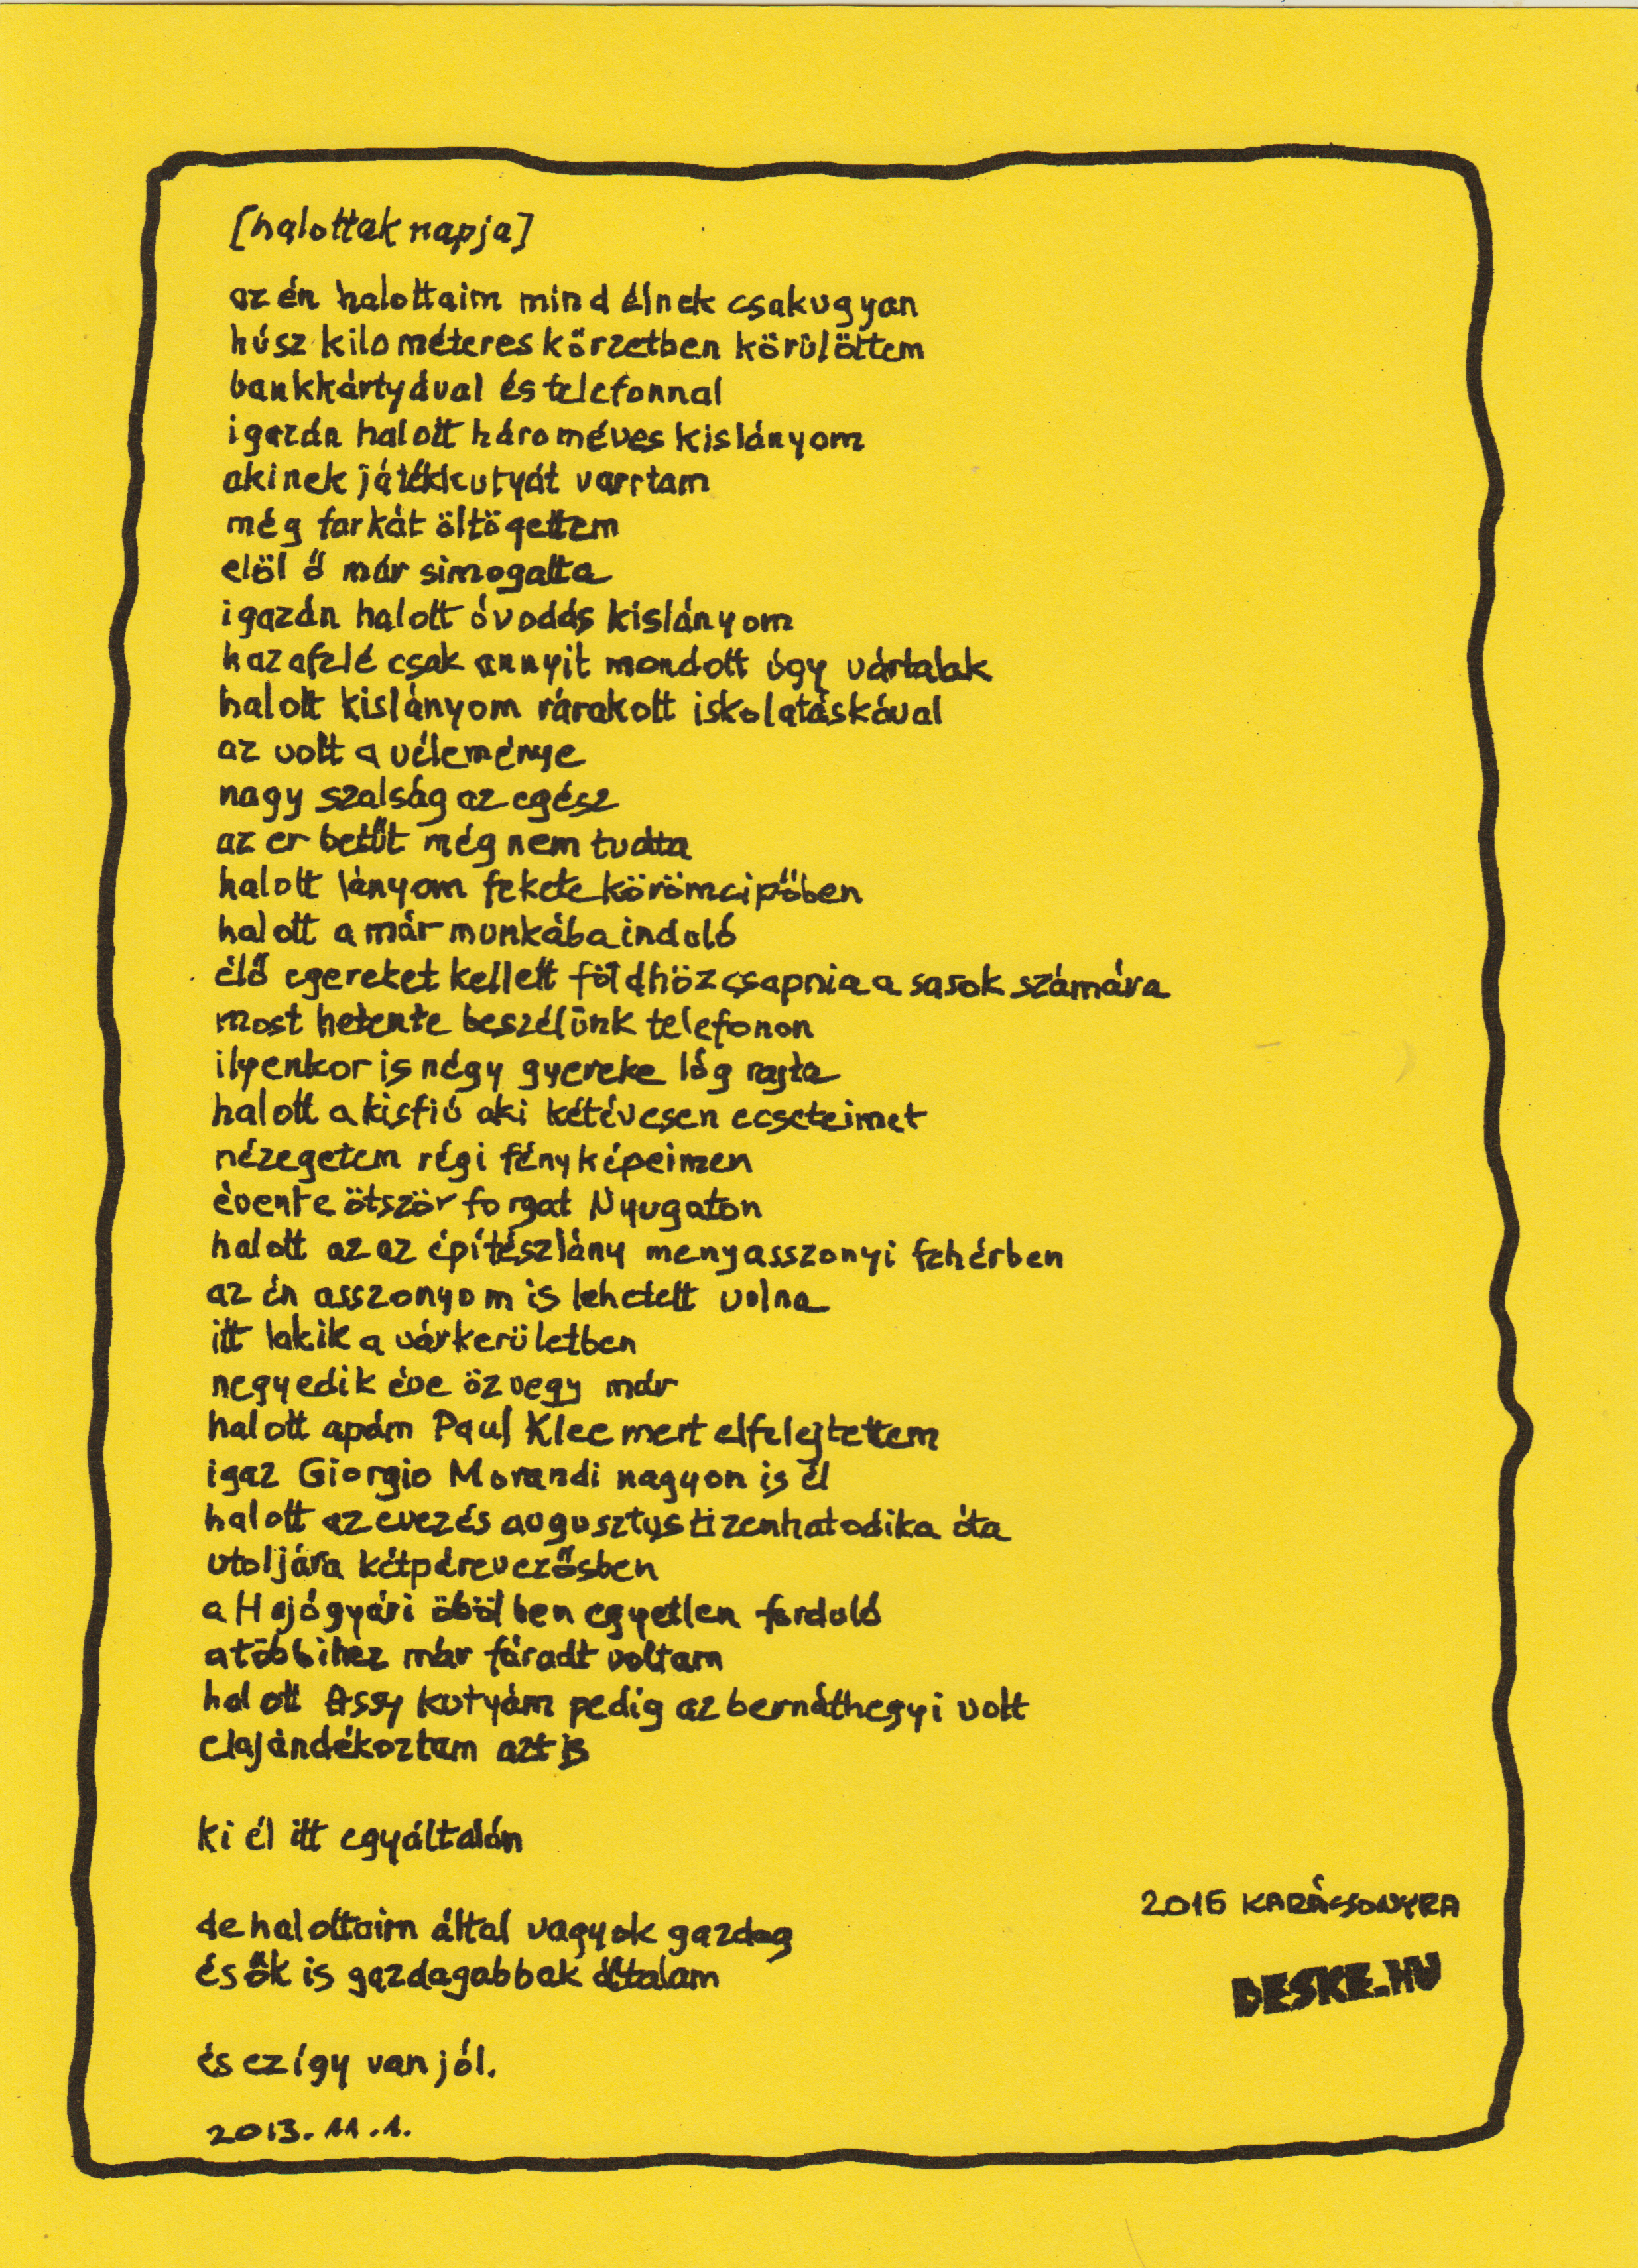 [halottak napja]
az én halottaim mind élnek csakugyan
húsz kilométeres körzetben körülöttem
bankkártyával és telefonnal
igazán halott hároméves kislányom
akinek játékkutyát varrtam
még farkát öltögettem
elöl ő már simogatta
igazán halott óvodás kislányom
hazafelé csak annyit mondott úgy vártalak
halott kislányom rárakott iskolatáskával
az volt a véleménye
nagy szalság az egész
az er betűt még nem tudta
halott lányom fekete körömcipőben
halott a már munkába induló
élő egereket kellett földhöz csapnia a sasok számára
most hetente beszélünk telefonon
ilyenkor is négy gyereke lóg rajta
halott a kisfiú aki kétévesen ecseteimet
nézegetem régi fényképeimen
évente ötször forgat Nyugaton
halott az az építészlány menyasszonyi fehérben
az én asszonyom is lehetett volna
itt lakik a várkerületben
negyedik éve özvegy már
halott apám Paul Klee mert elfelejtettem
igaz Giorgio Morandi nagyon is él
halott az evezés augusztus tizenhatodika óta
utoljára kétpárevezősben
a Hajógyári öbölben egyetlen forduló
a többihez már fáradt voltam
halott Assy kutyám pedig az bernáthegyi volt
elajándékoztam azt is
ki él itt egyáltalán
de halottaim által vagyok gazdag
és ők is gazdagabbak általam
és ez így van jól.
2013. 11. 1.
2016 KARÁCSONYRA
DESKE.HU